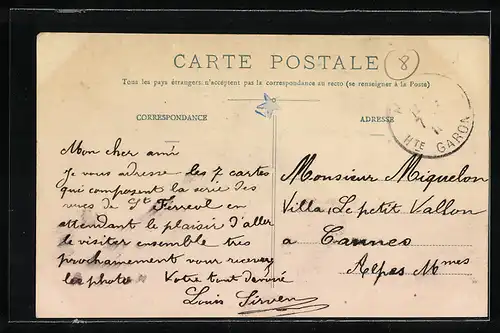 CARTE POSTALE
8
Tous les pays étrangers n'acceptent pas la correspondance au recto (se renseigner à la Poste)
CORRESPONDANCE
ADRESSE
HTE GARON
Mon cher ami
Je vous adresse les 7 cartes
qui composent la serie des
vues de St Ferreol en
attendant le plaisir d'aller
le visiter ensemble très
prochainement vous recevrez
les photo Votre tout dévoué
Louis Sirven
Monsieur Miquelon
Villa, Le petit Vallon
a Cannes
Alpes Mmes